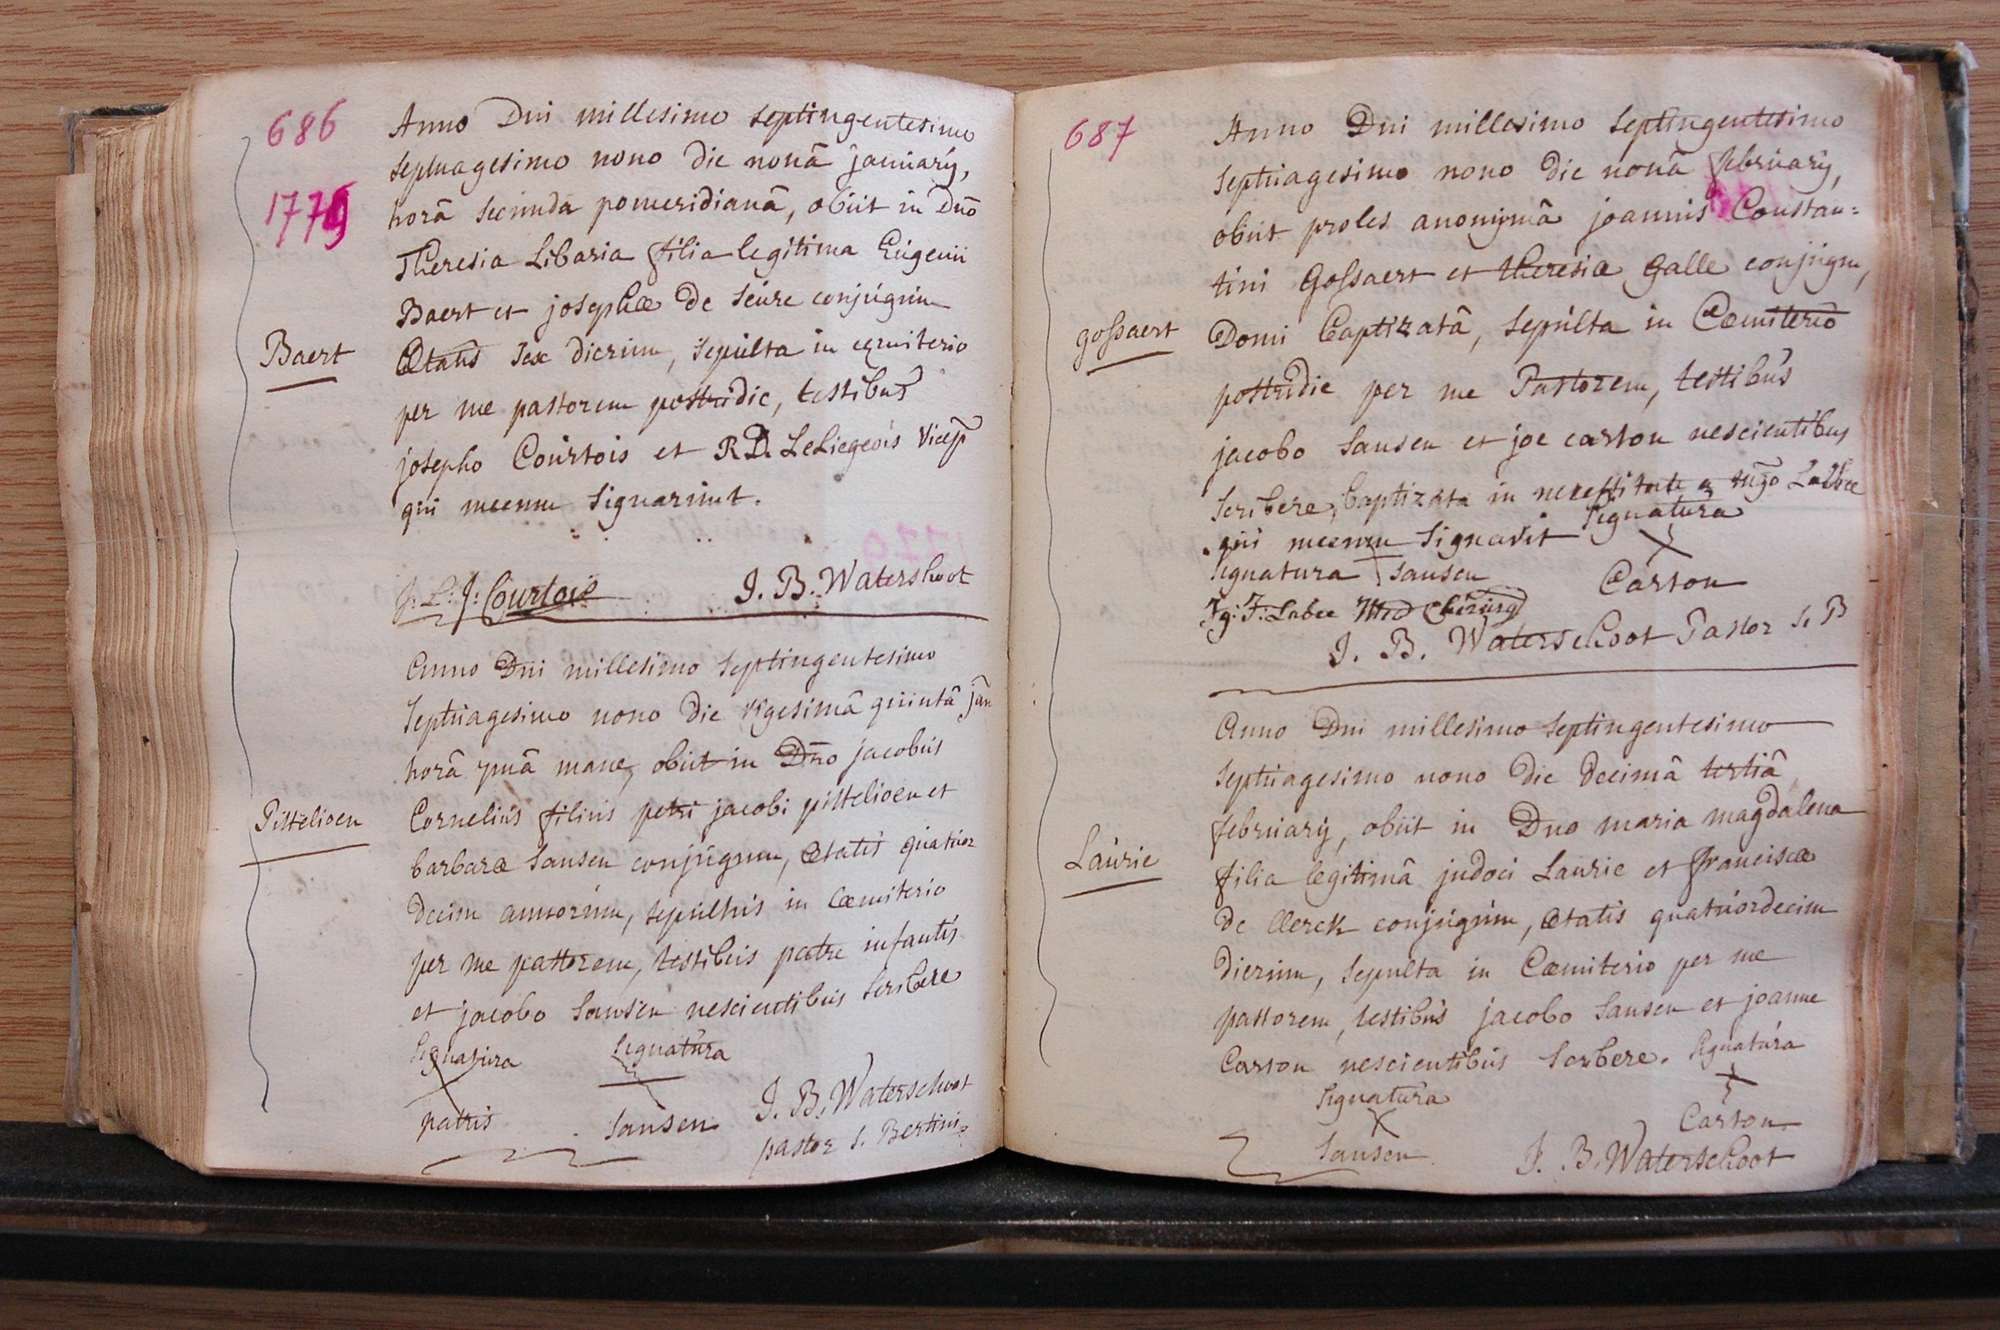 686
1779
Anno Dni millesimo septingentesimo
septuagesimo nono die nonâ january,
horâ secunda pomeridianâ, obiit in Dno
Theresia Libaria filia legitima Eugenii
Baert
Baert et josephæ de seure conjugum
Ætatis sex dierum, sepulta in cœmiterio
per me pastorem postridie, testibus
josepho Courtois et R.D. LeLiegeois Vicep
qui mecum signarunt.
J: L: J: Courtois J. B. Waterschoot
Anno Dni millesimo septingentesimo
septuagesimo nono die vigesimâ quintâ jan
horâ 7mâ mane, obiit in Dno jacobus
Pittelioen
Cornelius filius petri jacobi pittelioen et
barbaræ Sansen conjugum, ætatis quatuor
decim annorum, sepultus in Cœmiterio
per me pastorem, testibus patre infantis
et jacobo Sansen nescientibus scribere
signatura signatura
patris Sansen J. B. Waterschoot
pastor S. Bertini
687
Anno Dni millesimo septingentesimo
septuagesimo nono die nonâ february,
obiit proles anonymâ joannis Constan=
tini Gossaert et theresiæ Galle conjugum,
gossaert
Domi baptizatâ, sepulta in Cœmiterio
postridie per me Pastorem, testibus
jacobo Sansen et joe carton nescientibus
scribere, baptizata in necessitate a Labee
qui mecum signavit signatura
signatura Sansen Carton
Ig: F: Labee Med Chirurg
J. B. Waterschoot Pastor S. B
Anno Dni millesimo septingentesimo
septuagesimo nono die decimâ tertiâ
february, obiit in Dno maria magdalena
Laurie
filia legitimâ judoci Laurie et franciscæ
de clerck conjugum, ætatis quatuordecim
dierum, sepulta in Cœmiterio per me
pastorem, testibus jacobo Sansen et joanne
Carton nescientibus scribere. signatura
signatura
Carton
Sansen J. B. Waterschoot